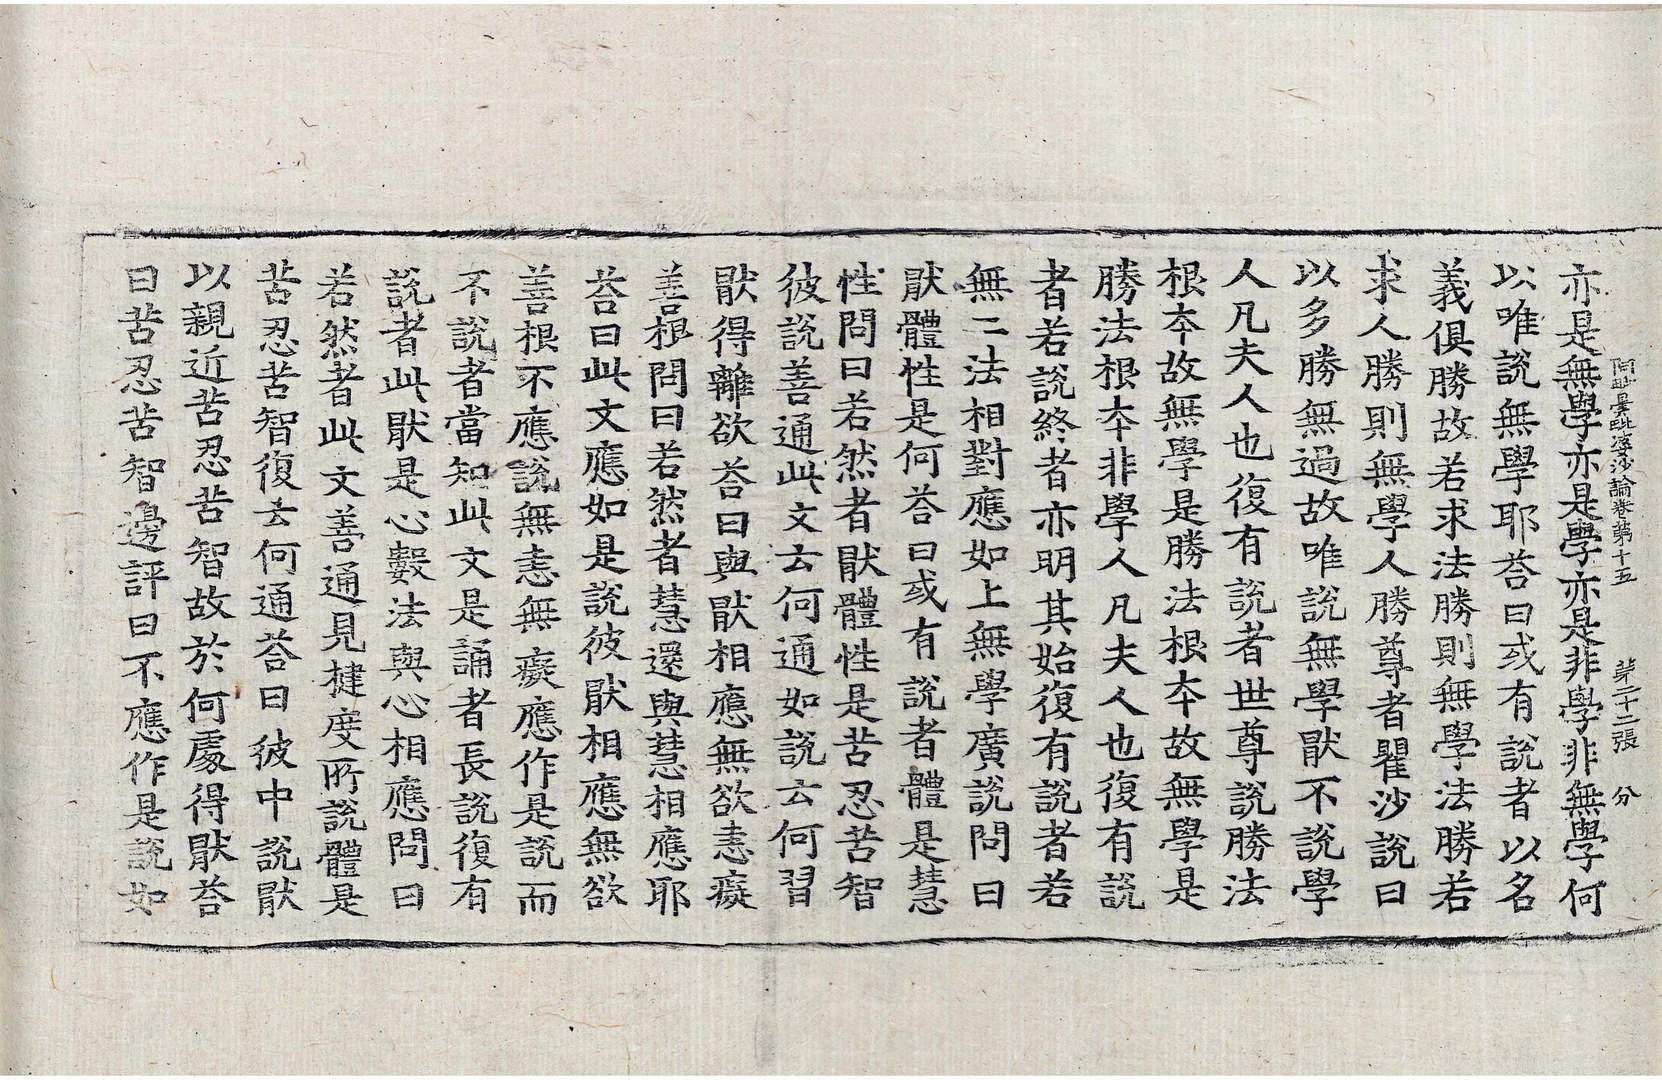 阿毗曇毗婆沙論卷第十五 第二十二張 分
亦是無學亦是學亦是非學非無學何
以唯說無學耶荅曰或有說者以名
義俱勝故若求法勝則無學法勝若
求人勝則無學人勝尊者瞿沙說曰
以多勝無過故唯說無學猒不說學
人凡夫人也復有說者世尊說勝法
根夲故無學是勝法根夲故無學是
勝法根夲非學人凡夫人也復有說
者若說終者亦明其始復有說者若
無二法相對應如上無學廣說問曰
猒體性是何荅曰或有說者體是慧
性問曰若然者猒體性是苦忍苦智
彼說善通此文云何通如說云何習
猒得離欲荅曰與猒相應無欲恚癡
善根問曰若然者慧還與慧相應耶
荅曰此文應如是說彼猒相應無欲
善根不應說無恚無癡應作是說而
不說者當知此文是誦者長說復有
說者此猒是心數法與心相應問曰
若然者此文善通見揵度所說體是
苦忍苦智復云何通荅曰彼中說猒
以親近苦忍苦智故於何處得猒荅
曰苦忍苦智邊評曰不應作是說如